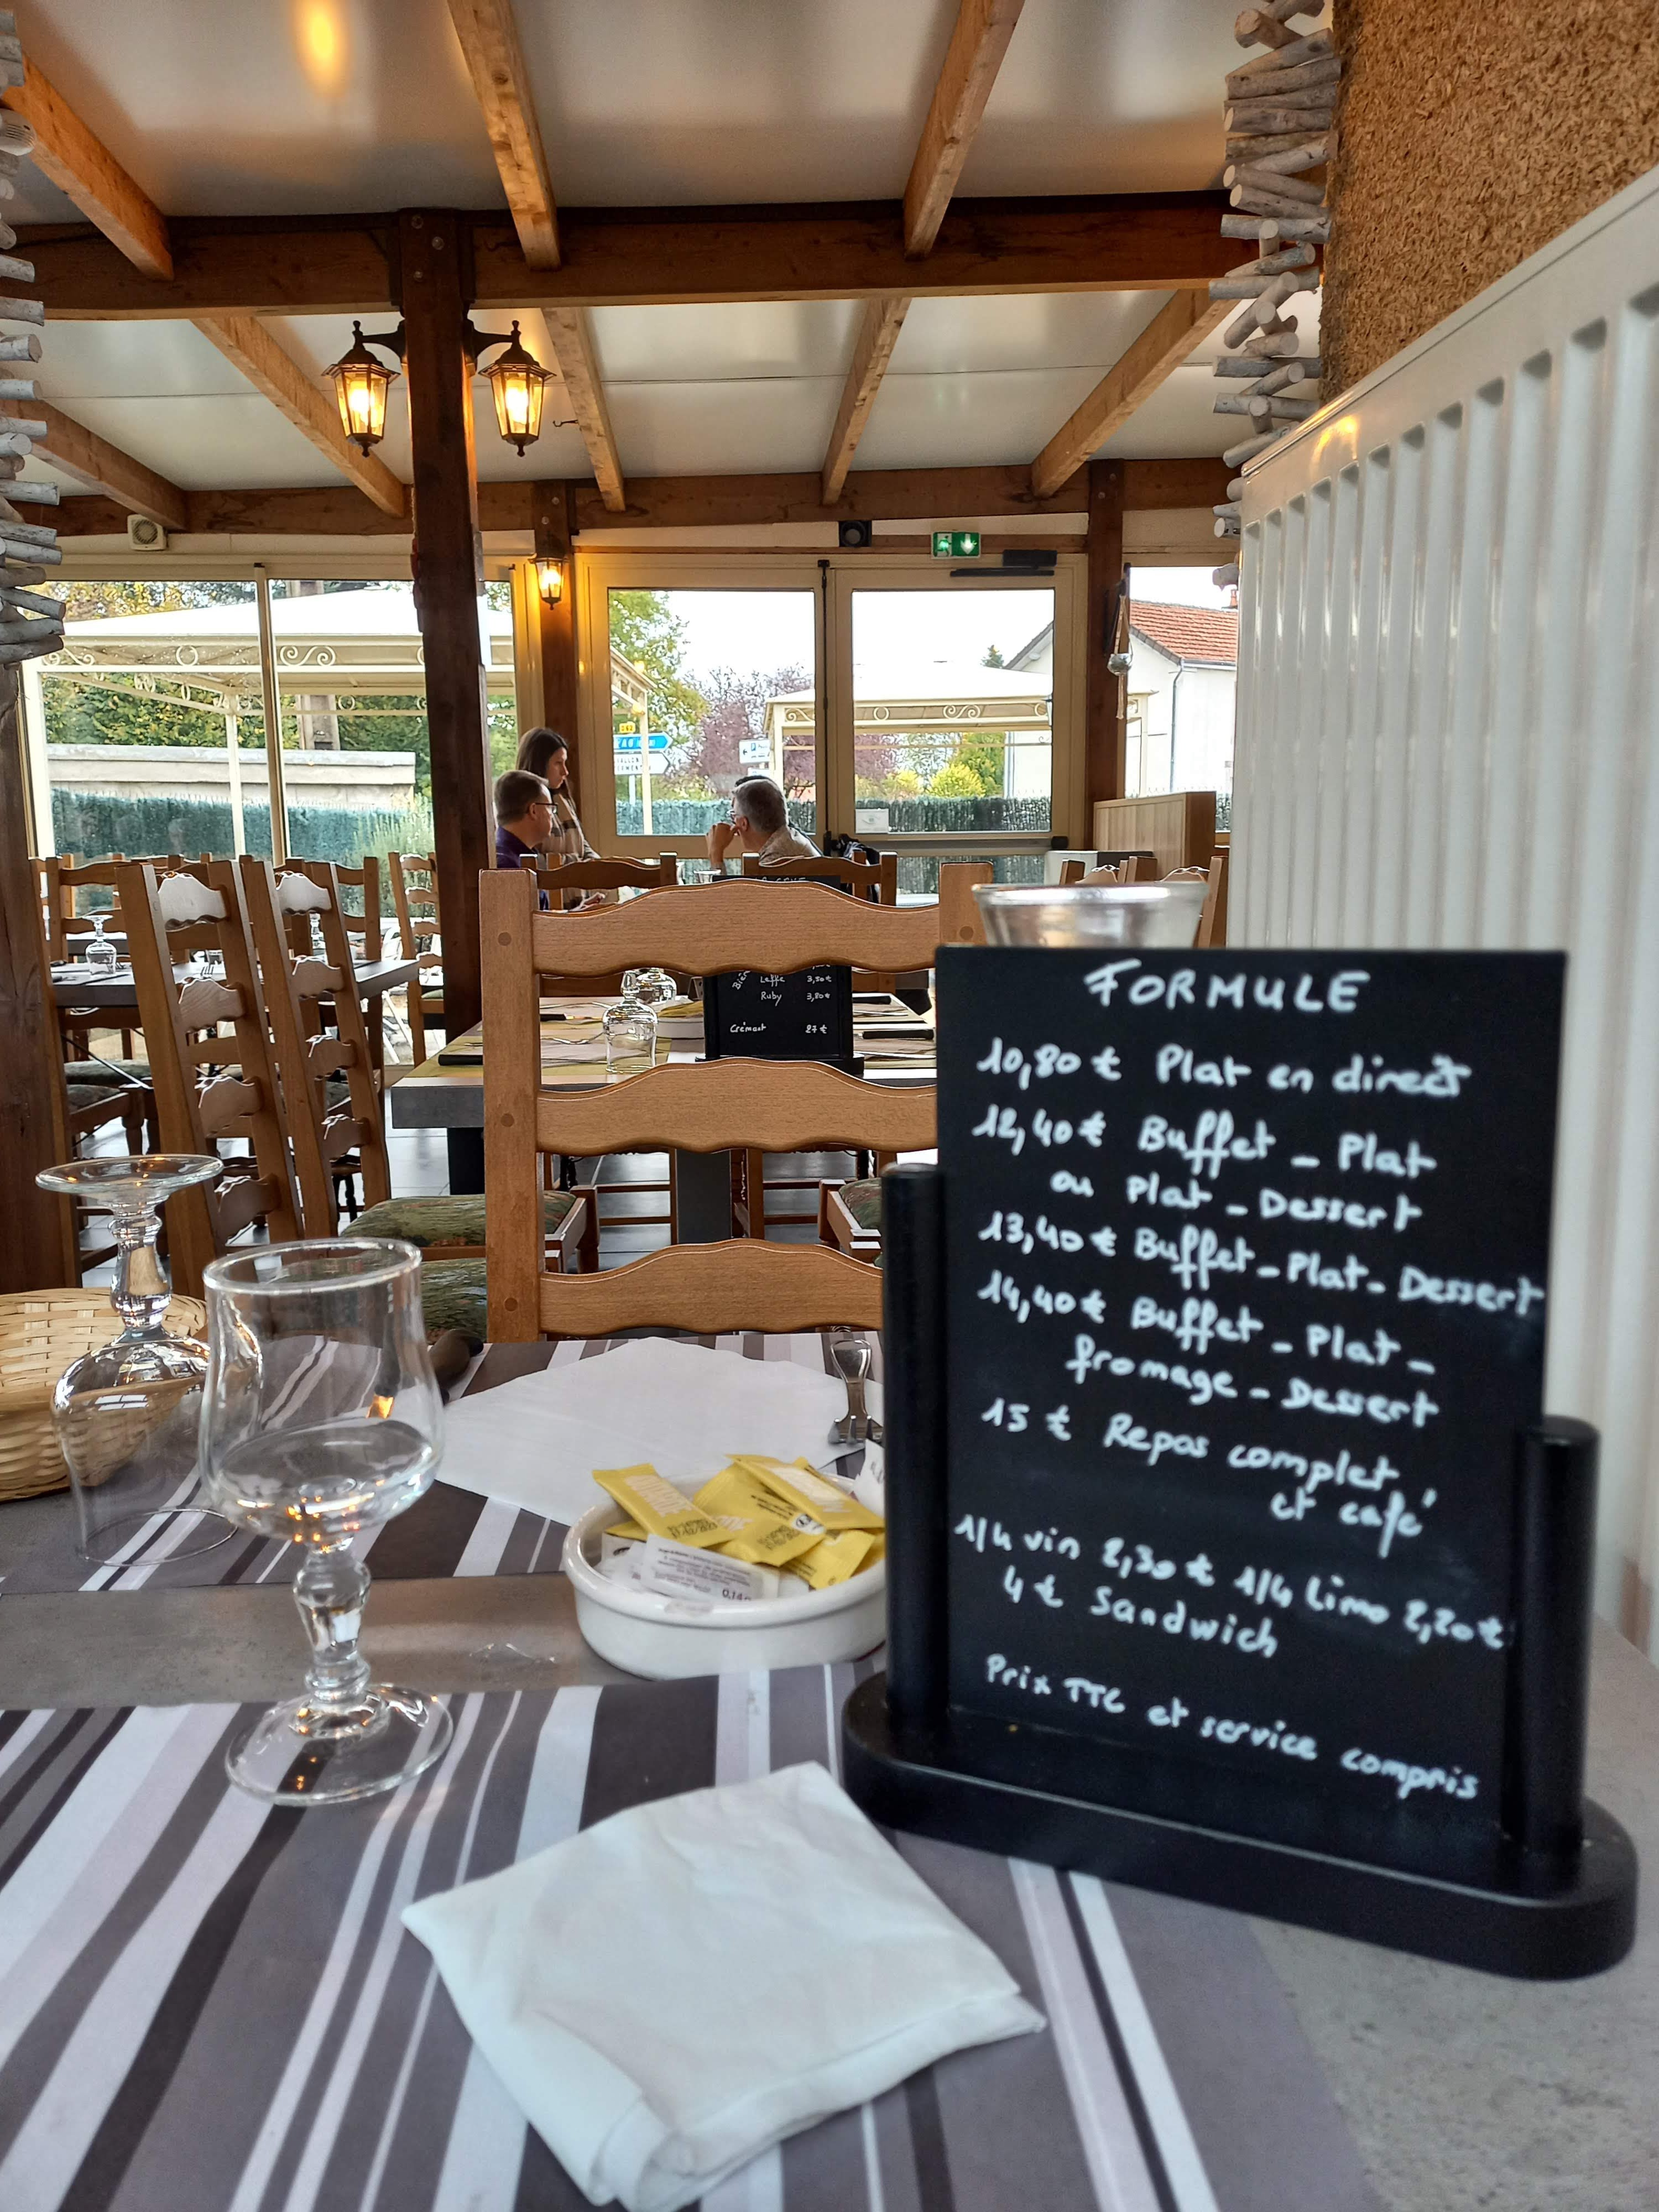 FORMULE
10,80 € Plat en direct
12,40 € Buffet - Plat
ou plat - Dessert
13,40 € Buffet - Plat - Dessert
14,40 € Buffet - Plat -
fromage - Dessert
15 € Repas complet,
et café
1/4 vin 2,30 € 1/4 Limo 2,20 €
4 € Sandwich
Prix TTC et service compris
Leffe 3,50 €
Ruby 3,80 €
Crémant 27 €
0,14